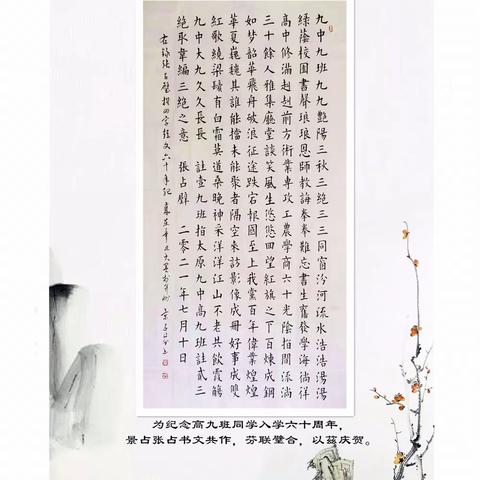 九中九班九九艷陽三秋三絕三三同窗汾河流水浩浩湯湯
綠蔭校園書聲琅琅恩師教誨拳拳難忘書生奮發學海徜徉
高中修滿赳赳前方術業專攻工農學商六十光陰指間流淌
三十餘人雅集廳堂談笑風生悠悠回望紅旗之下百煉成鋼
如夢韶華飛舟破浪征途跌宕報國至上我黨百年偉業煌煌
華夏巍巍其誰能擋未能聚者隔空來訪影像成冊好事成雙
紅歌繞梁鬢有白霜莫道桑晚神采洋洋江山不老共飲霞觴
九中大九久久長長 註壹九班指太原九中高九班註貳三
絕取韋編三絕之意 張占辟 二零二一年七月十日
右錄張占 撰四字經文六十年紀
为纪念高九班同学入学六十周年，
景占张占书文共作，芬联璧合，以兹庆贺。